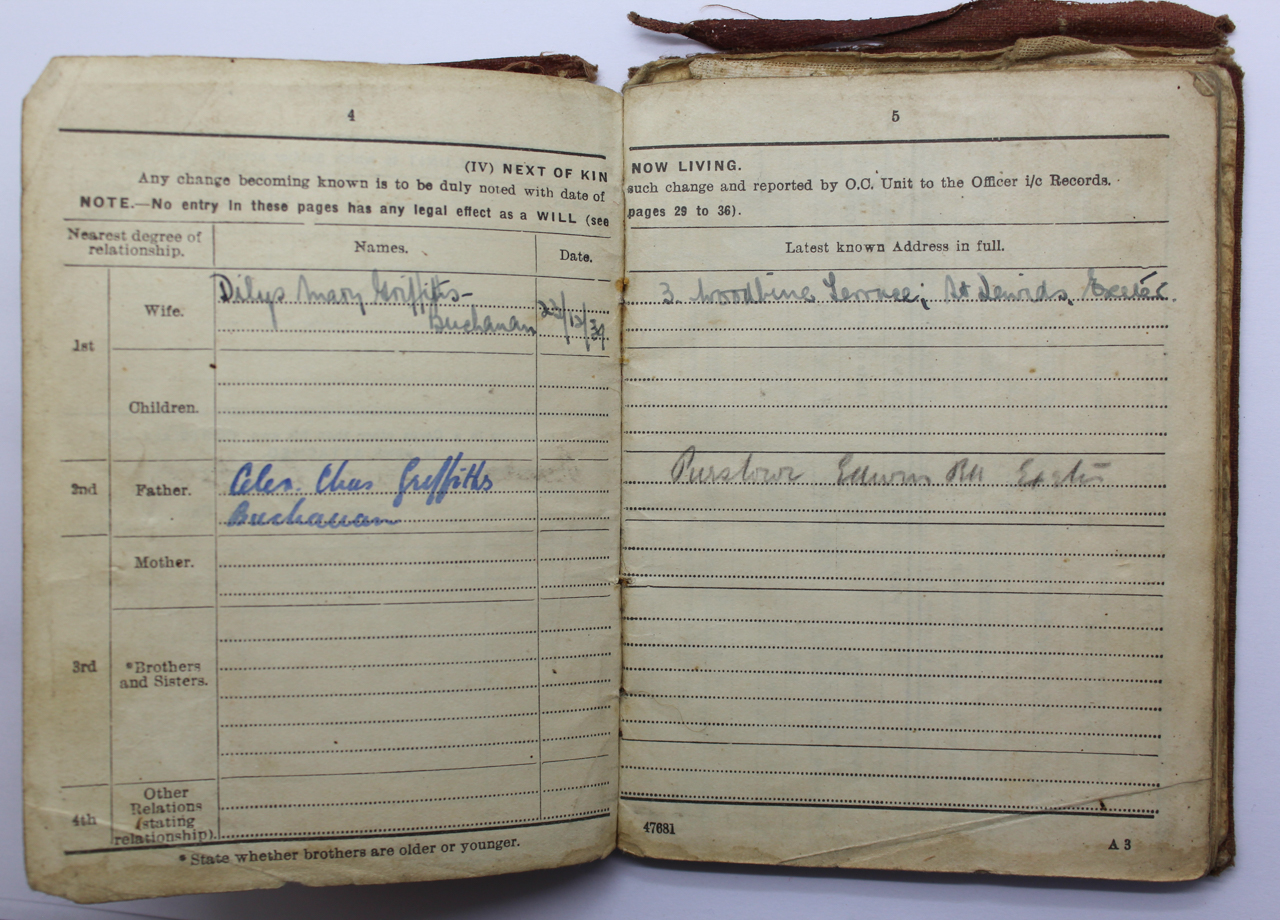 4
(IV) NEXT OF KIN
Any change becoming known is to be duly noted with date of
NOTE.—No entry in these pages has any legal effect as a WILL (see
Nearest degree of
relationship.
Names.
Date.
1st
Wife.
Dilys Mary Griffiths-
Buchanan
Children.
2nd
Father.
Alex. Chas Griffiths
Buchanan
Mother.
3rd
*Brothers
and Sisters.
4th
Other
Relations
(stating
relationship).
* State whether brothers are older or younger.
5
NOW LIVING.
such change and reported by O.C. Unit to the Officer i/c Records.
pages 29 to 36).
Latest known Address in full.
3. Woodbine Terrace, St Davids, Exeter.
Edwin Rd Exeter
47681
A 3